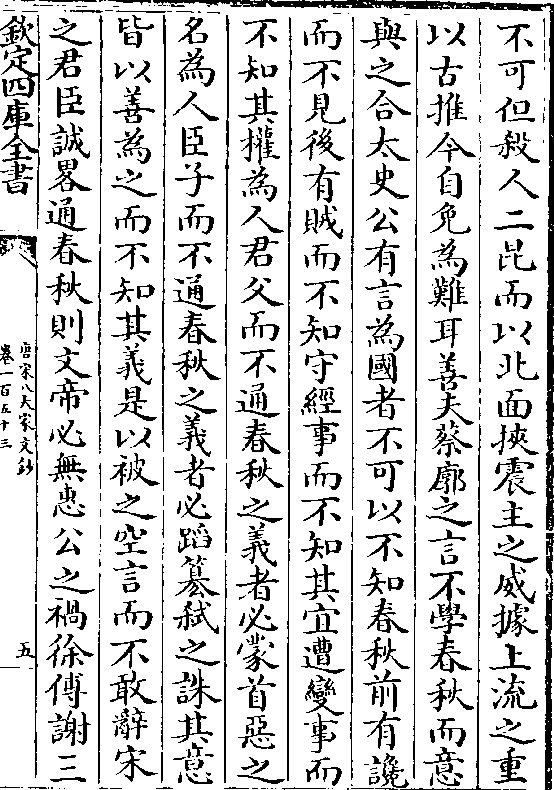 不可但殺人二昆而以北面挾震主之威據上流之重
以古推今自免為難耳善夫蔡廓之言不學春秋而意
與之合太史公有言為國者不可以不知春秋前有讒
而不見後有賊而不知守經事而不知其宜遭變事而
不知其權為人君父而不通春秋之義者必蒙首惡之
名為人臣子而不通春秋之義者必蹈簒弑之誅其意
皆以善為之而不知其義是以被之空言而不敢辭宋
之君臣誠畧通春秋則文帝必無惠公之禍徐傅謝三
欽定四庫全書
唐宋八大家文鈔
卷一百五十三
五